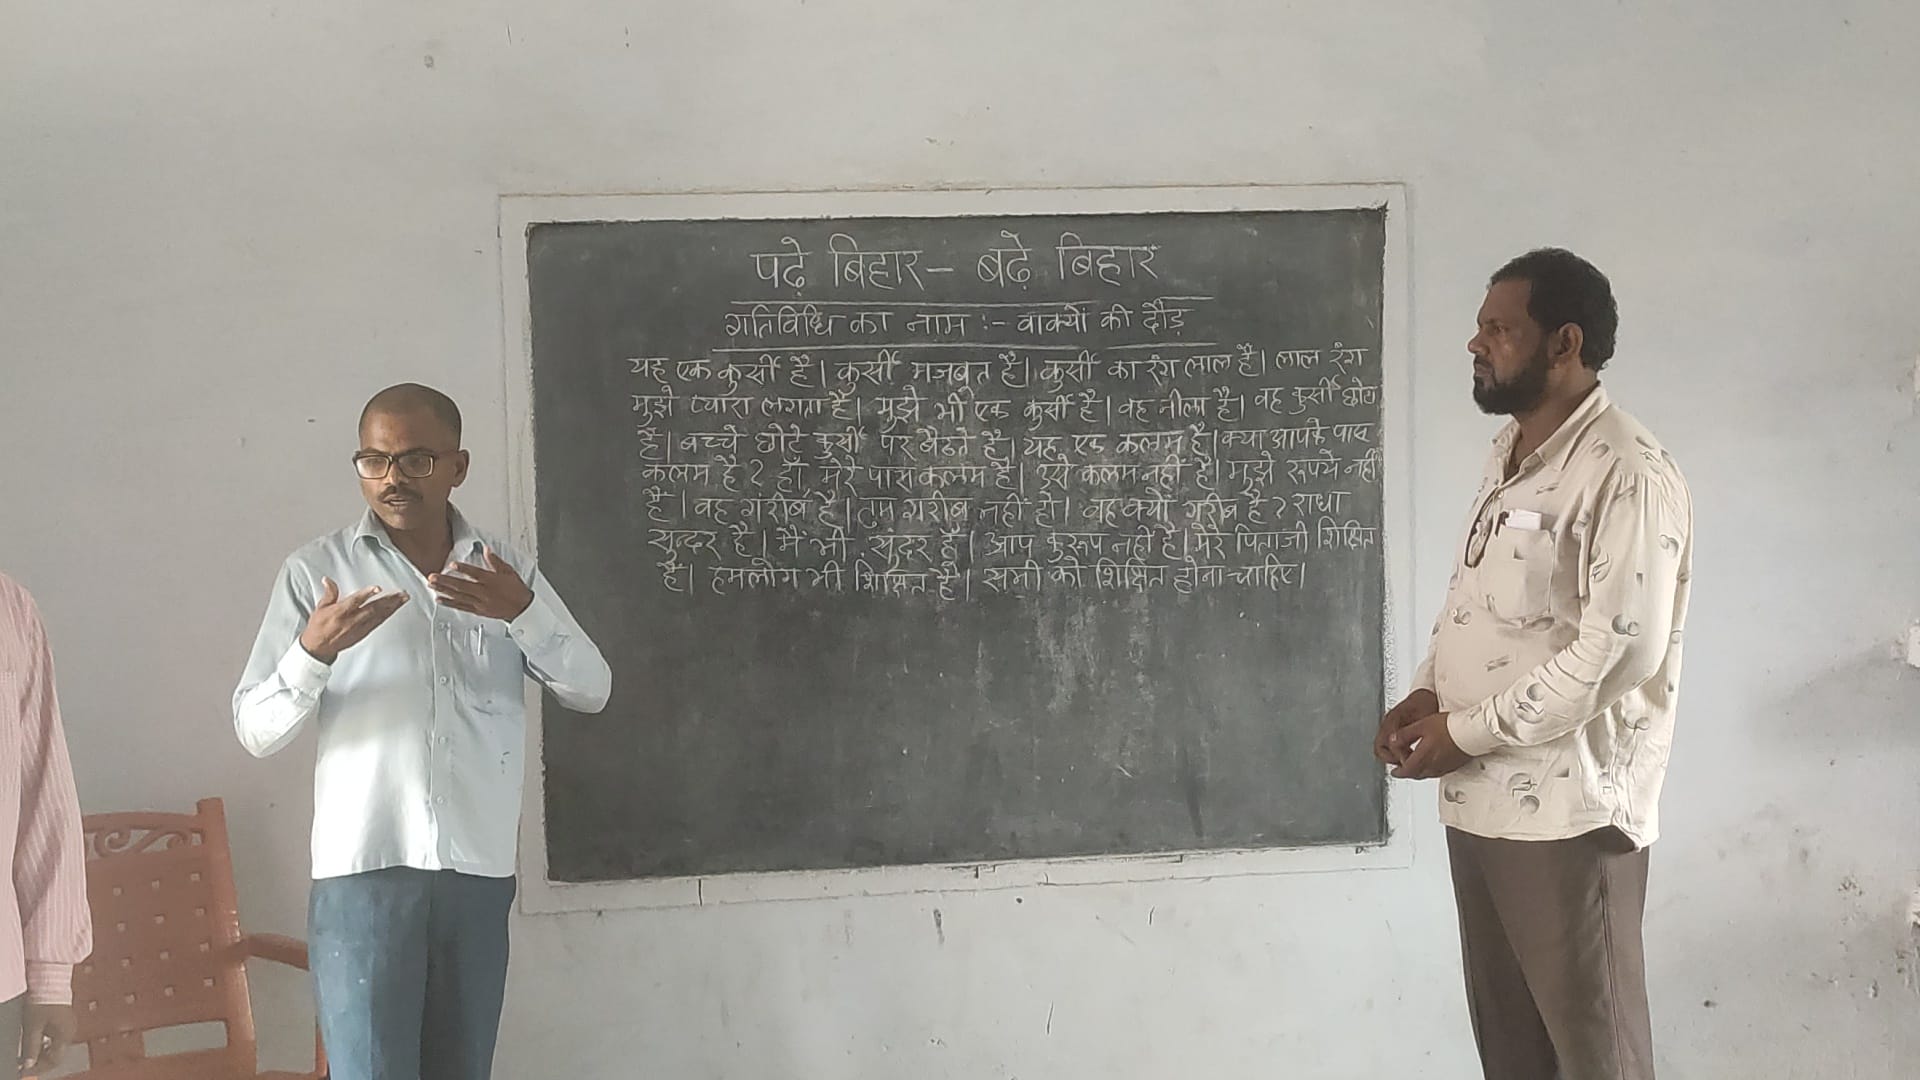 पढ़े बिहार - बढ़े बिहार
गतिविधि का नाम :- वाक्यों की दौड़
यह एक कुर्सी है। कुर्सी मजबूत है। कुर्सी का रंग लाल है। लाल रंग
मुझे प्यारा लगता है। मुझे भी एक कुर्सी है। वह नीला है। वह कुर्सी छोटा
है। बच्चे छोटे कुर्सी पर बैठते है। यह एक कलम है। क्या आपके पास
कलम है ? हाँ, मेरे पास कलम है। उसे कलम नहीं है। मुझे रूपये नहीं
है। वह गरीब है। तुम गरीब नहीं हो। वह क्यों गरीब है ? राधा
सुन्दर है। मैं भी सुंदर हूँ। आप कुरूप नहीं है। मेरे पिताजी शिक्षित
है। हमलोग भी शिक्षित है। सभी को शिक्षित होना चाहिए।